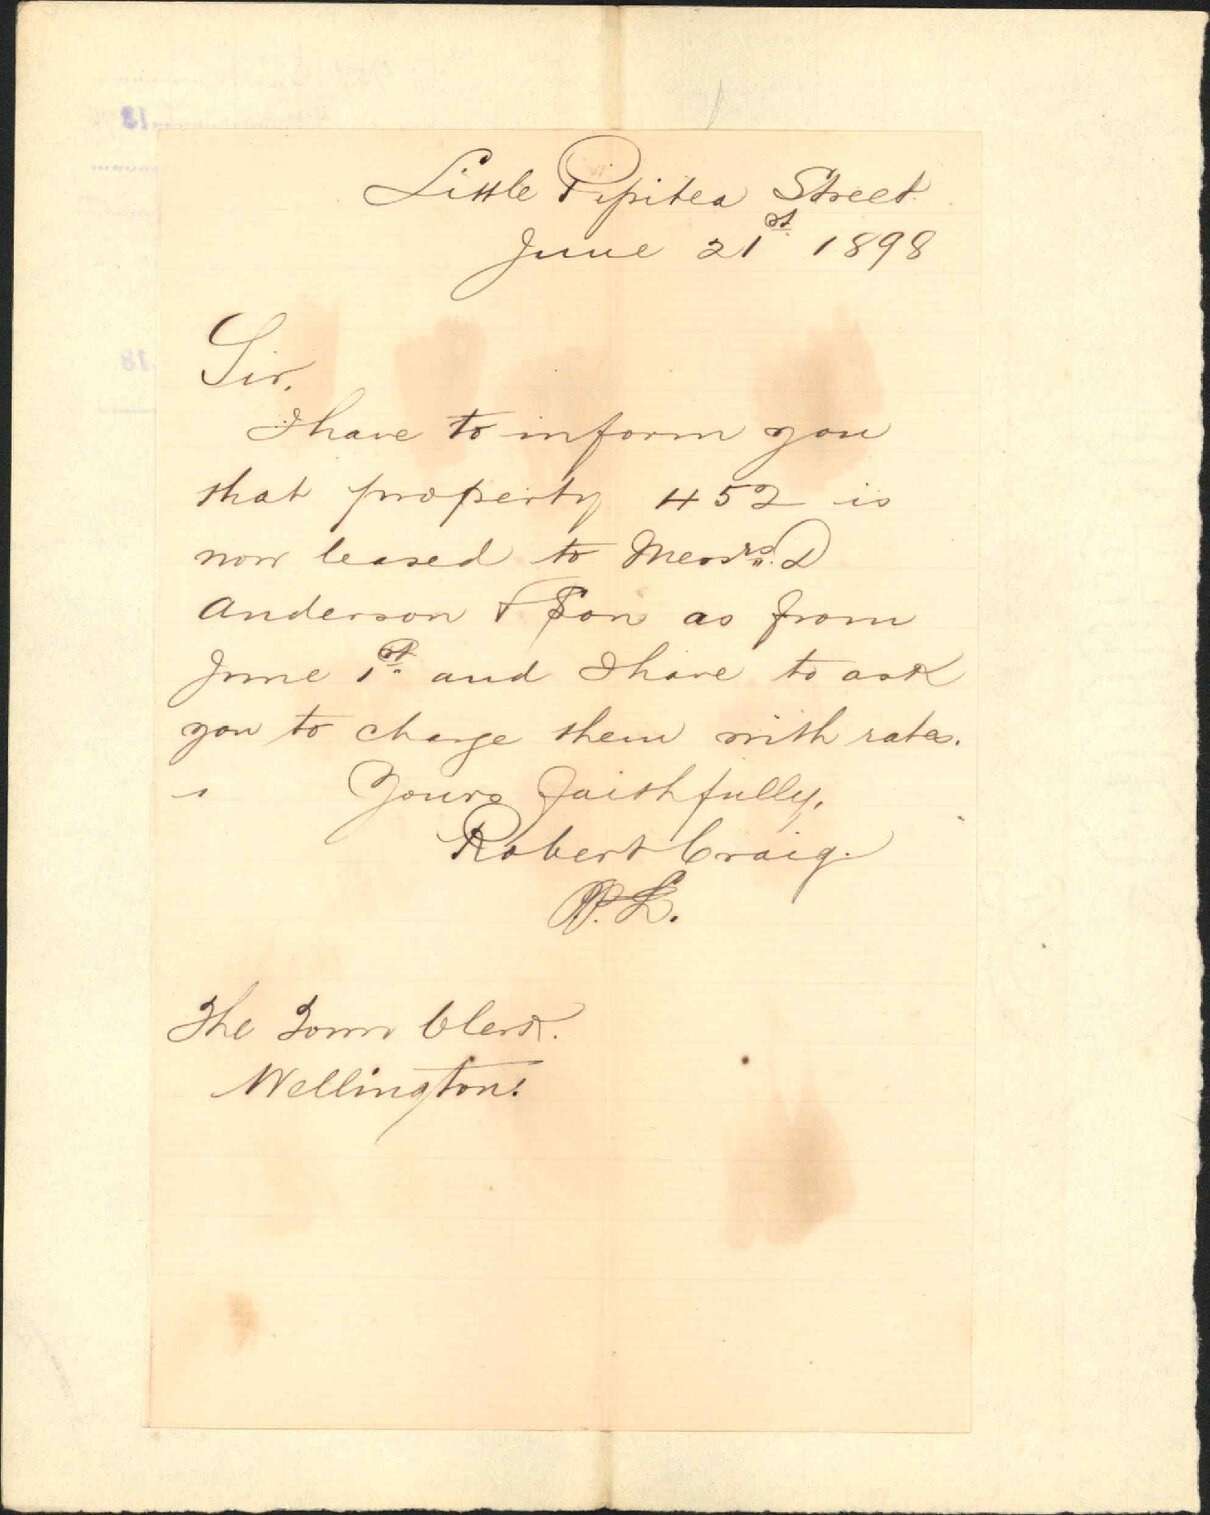 Little Pipitea Street.
June 21st. 1898
Sir.
I have to inform you
that property 452 is
now leased to Messrs. D
Anderson & Son as from
June 1st. and I have to ask
you to charge them with rates.
Yours Faithfully,
Robert Craig.
The Town Clerk.
Wellington.